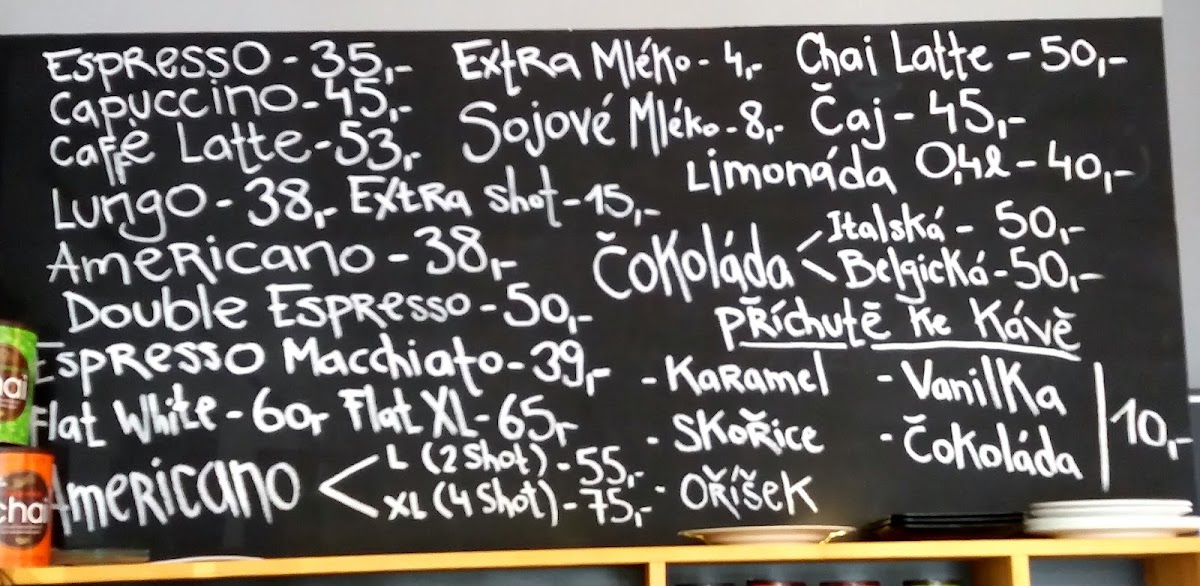 Espresso - 35,-
Capuccino - 45,-
Caffè Latte - 53,-
Lungo - 38,- Extra shot - 15,-
Americano - 38,-
Double Espresso - 50,-
Espresso Macchiato - 39,-
Flat White - 60,- Flat XL - 65,-
Americano < L (2 Shot) - 55,-
XL (4 Shot) - 75,-
Extra Mléko - 4,-
Sojové Mléko - 8,-
Chai Latte - 50,-
Čaj - 45,-
Limonáda 0,4l - 40,-
Čokoláda < Italská - 50,-
Belgická - 50,-
Příchutě ke kávě
- Karamel - Vanilka
- Skořice - Čokoláda | 10,-
- Oříšek
hai
chai